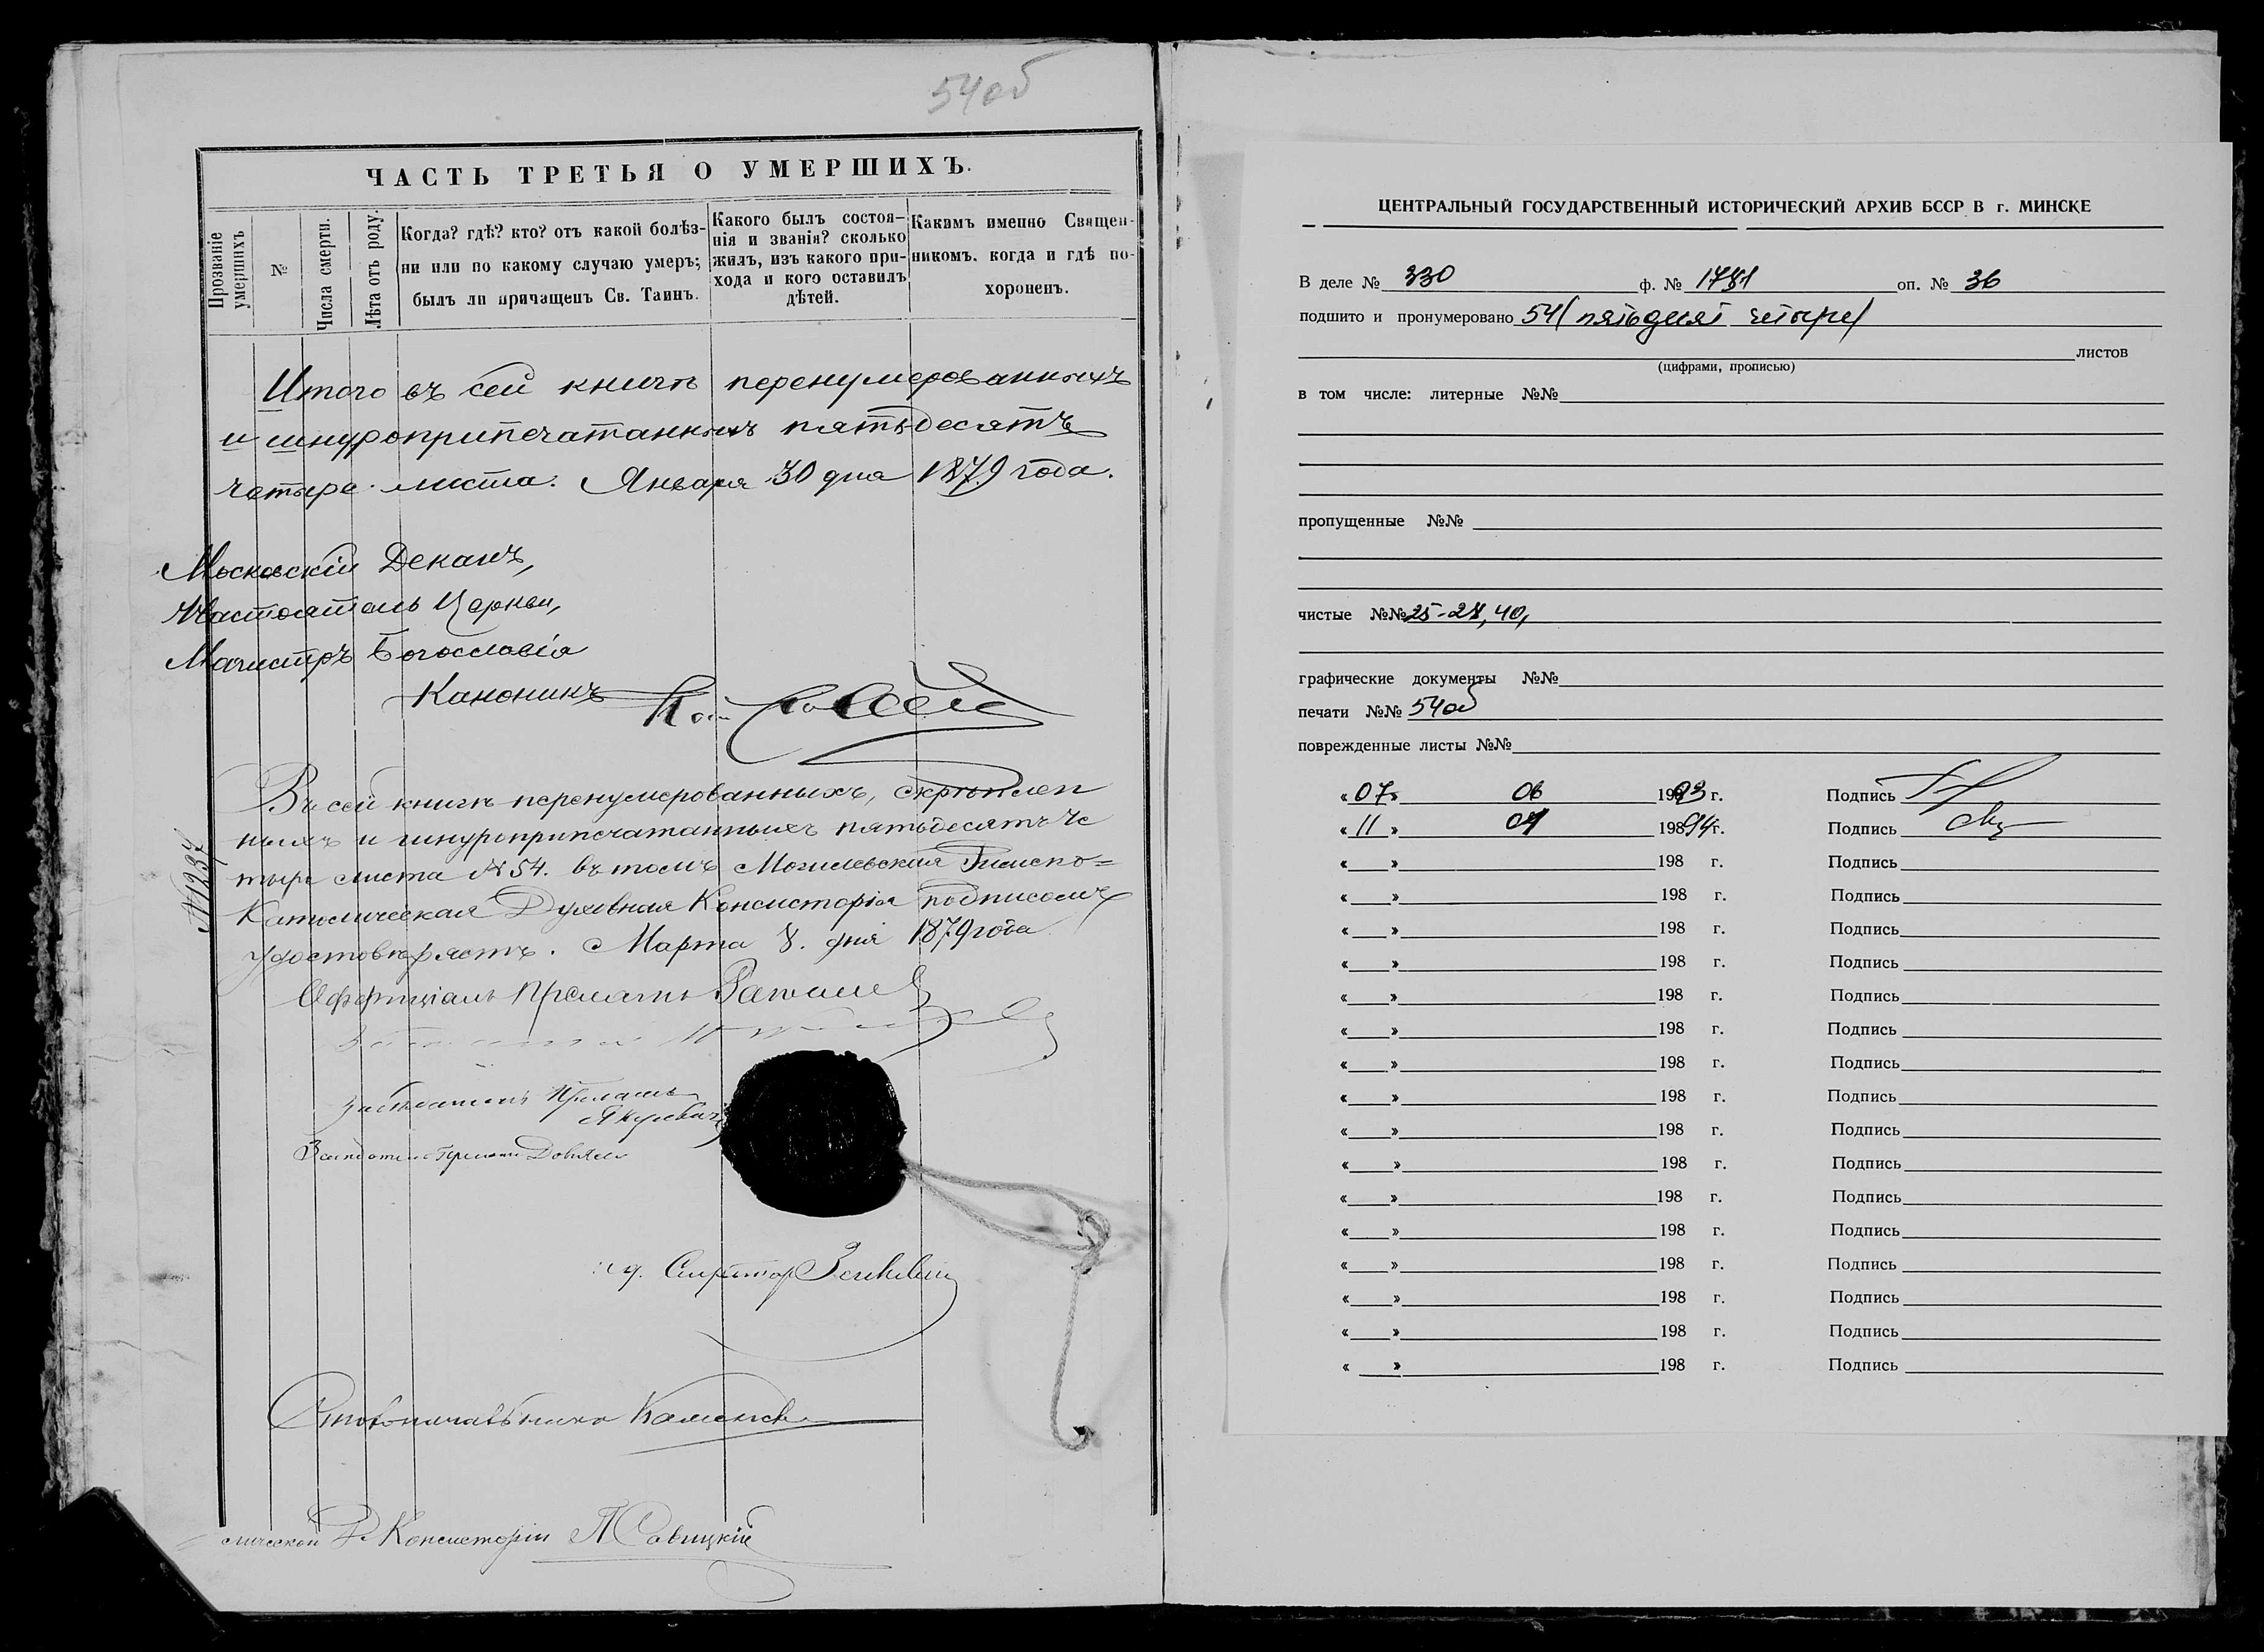 54об
ЧАСТЬ ТРЕТЬЯ О УМЕРШИХЪ.
Прозваніе умершихъ
№
Числа смерти.
Лѣта отъ роду.
Когда? гдѣ? кто? отъ какой болѣз-
ни или по какому случаю умеръ;
былъ ли причащенъ Св. Таинъ.
Какого былъ состоя-
нія и званія? сколько
жилъ, изъ какого при-
хода и кого оставилъ
дѣтей.
Какимъ именно Священ-
никомъ. когда и гдѣ по-
хороненъ.
Итого въ сей книгѣ перенумерованныхъ
и шнуроприпечатанныхъ пятьдесятъ
четыре листа. Января 30 дня 1879 года.
Московскій Деканъ,
Настоятель Церкви,
Магистръ Богословія
Каноникъ
Въ сей книгѣ перенумерованныхъ, скрѣплен
ныхъ и шнуроприпечатанныхъ пятьдесятъ че
тыре листа №54. въ томъ Могилевская Римско=
Католическая Духовная Консисторія подписомъ
удостовѣряетъ. Марта 8. дня 1879 года
№1237
Оффиціалъ Прелатъ
Засѣдатель Прелатъ
Засѣдатель Прелатъ
и д. Секретарь Зенкевичъ
Столоначальникъ
лической Д. Консисторіи П Савицкій
ЦЕНТРАЛЬНЫЙ ГОСУДАРСТВЕННЫЙ ИСТОРИЧЕСКИЙ АРХИВ БССР В г. МИНСКЕ
В деле № 330 ф. № 1781 оп. № 36
подшито и пронумеровано 54 (пятьдесят четыре)
листов
(цифрами, прописью)
в том числе: литерные №№
пропущенные №№
чистые №№ 25-28, 40,
графические документы №№
печати №№ 54об
поврежденные листы №№
« 07 » 06 1993 г. Подпись
« 11 » 04 1994 г. Подпись
« » 198 г. Подпись
« » 198 г. Подпись
« » 198 г. Подпись
« » 198 г. Подпись
« » 198 г. Подпись
« » 198 г. Подпись
« » 198 г. Подпись
« » 198 г. Подпись
« » 198 г. Подпись
« » 198 г. Подпись
« » 198 г. Подпись
« » 198 г. Подпись
« » 198 г. Подпись
« » 198 г. Подпись
« » 198 г. Подпись
« » 198 г. Подпись